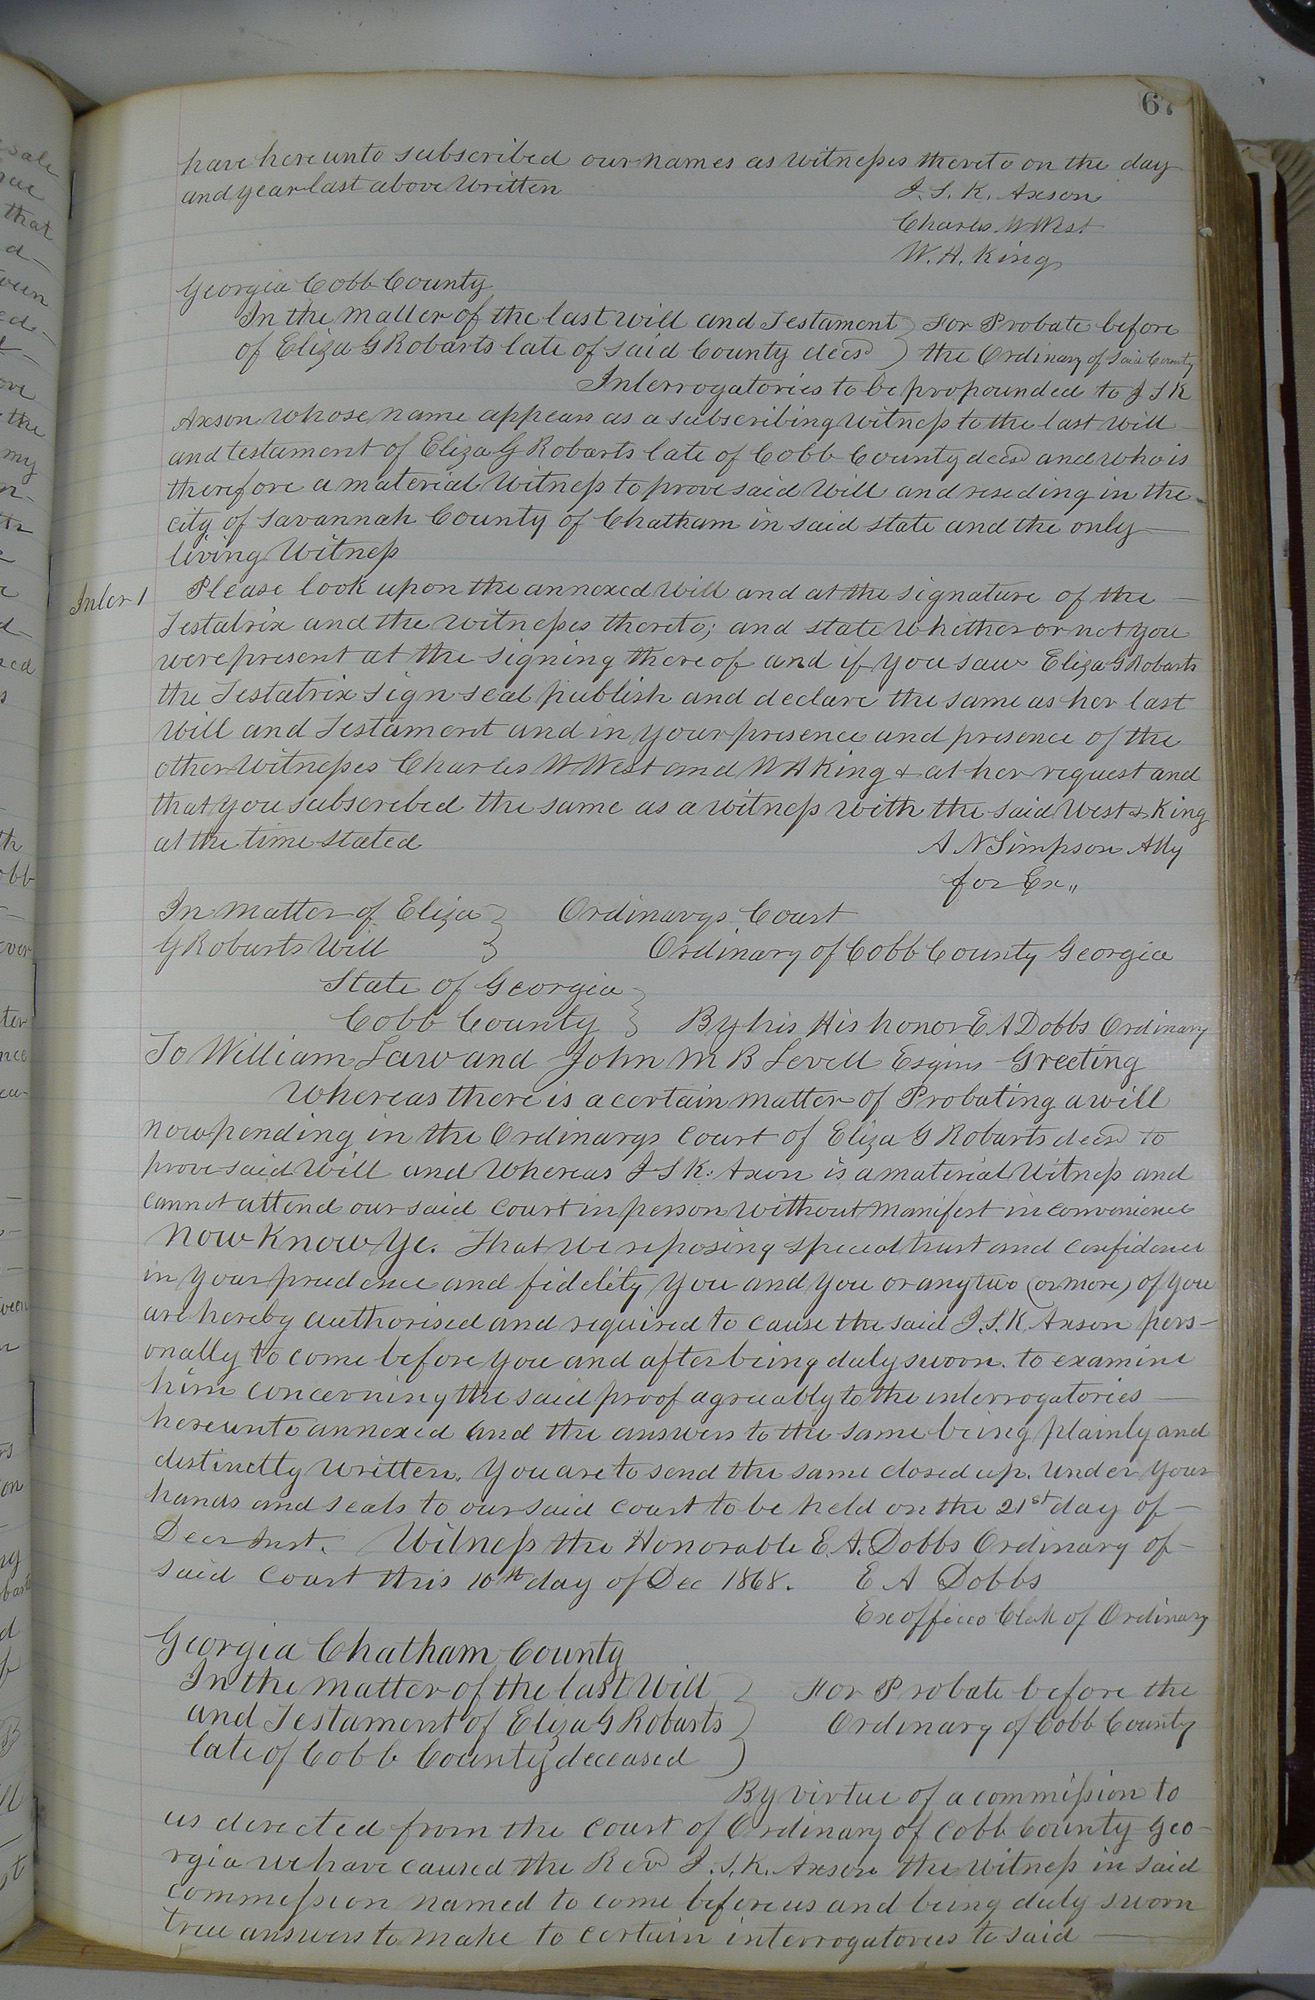 67
have hereunto subscribed our names as witnesses thereto on the day
and year last above written
I. S. K. Axson
Charles W West
W. A. King
Georgia Cobb County
In the matter of the last will and Testament } For Probate before
of Eliza G Robarts late of said County decsd } the Ordinary of said County
Interrogatories to be propounded to I S K
Axson whose name appears as a subscribing witness to the last will
and testament of Eliza G Robarts late of Cobb County decsd and who is
therefore a material witness to prove said will and reseding in the
city of Savannah County of Chatham in said state and the only
living witness
Inter 1 Please look upon the annexed will and at the signature of the
Testatrix and the witnesses thereto; and state whither or not you
were present at the signing there of and if you saw Eliza G Robarts
the Testatrix sign seal publish and declare the same as her last
will and Testament and in your presence and presence of the
other witnesses Charles W West and W A King & at her request and
that you subscribed the same as a witness with the said West & King
at the time stated
A N Simpson Atty
for Ex,,
In matter of Eliza } Ordinarys Court
G Robarts Will } Ordinary of Cobb County Georgia
State of Georgia }
Cobb County } By his His honor E A Dobbs Ordinary
To William Law and John M B Lovell Esqins Greeting
Whereas there is a certain matter of Probating a will
now pending in the Ordinarys Court of Eliza G Robarts decsd to
prove said will and whereas I S K. Axon is a material witness and
cannot attend our said Court in person without manifest inconvenience
Now Know Ye. That we reposing special trust and confidence
in your prudence and fidelity you and you or any two (or more) of you
are hereby authorised and required to cause the said I. S. K. Axson pers-
onally to come before you and after being duly sworn. to examine
him concerning the said proof agreeably to the interrogatories
hereunto annexed and the answers to the same being plainly and
distinctly written. You are to send the same closed up. under your
hands and seals to our said Court to be held on the 21st day of
Decr Inst. Witness the Honorable E. A. Dobbs Ordinary of
said Court this 10th day of Dec 1868. E A Dobbs
Exofficio Clerk of Ordinary
Georgia Chatham County
In the matter of the last Will } For Probate before the
and Testament of Eliza G Robarts } Ordinary of Cobb County
late of Cobb County deceased }
By virtue of a commission to
us directed from the Court of Ordinary of Cobb County Geo-
rgia we have caused the Revd I. S. K. Axson the witness in said
commission named to come before us and being duly sworn
true answers to make to certain interrogatories to said